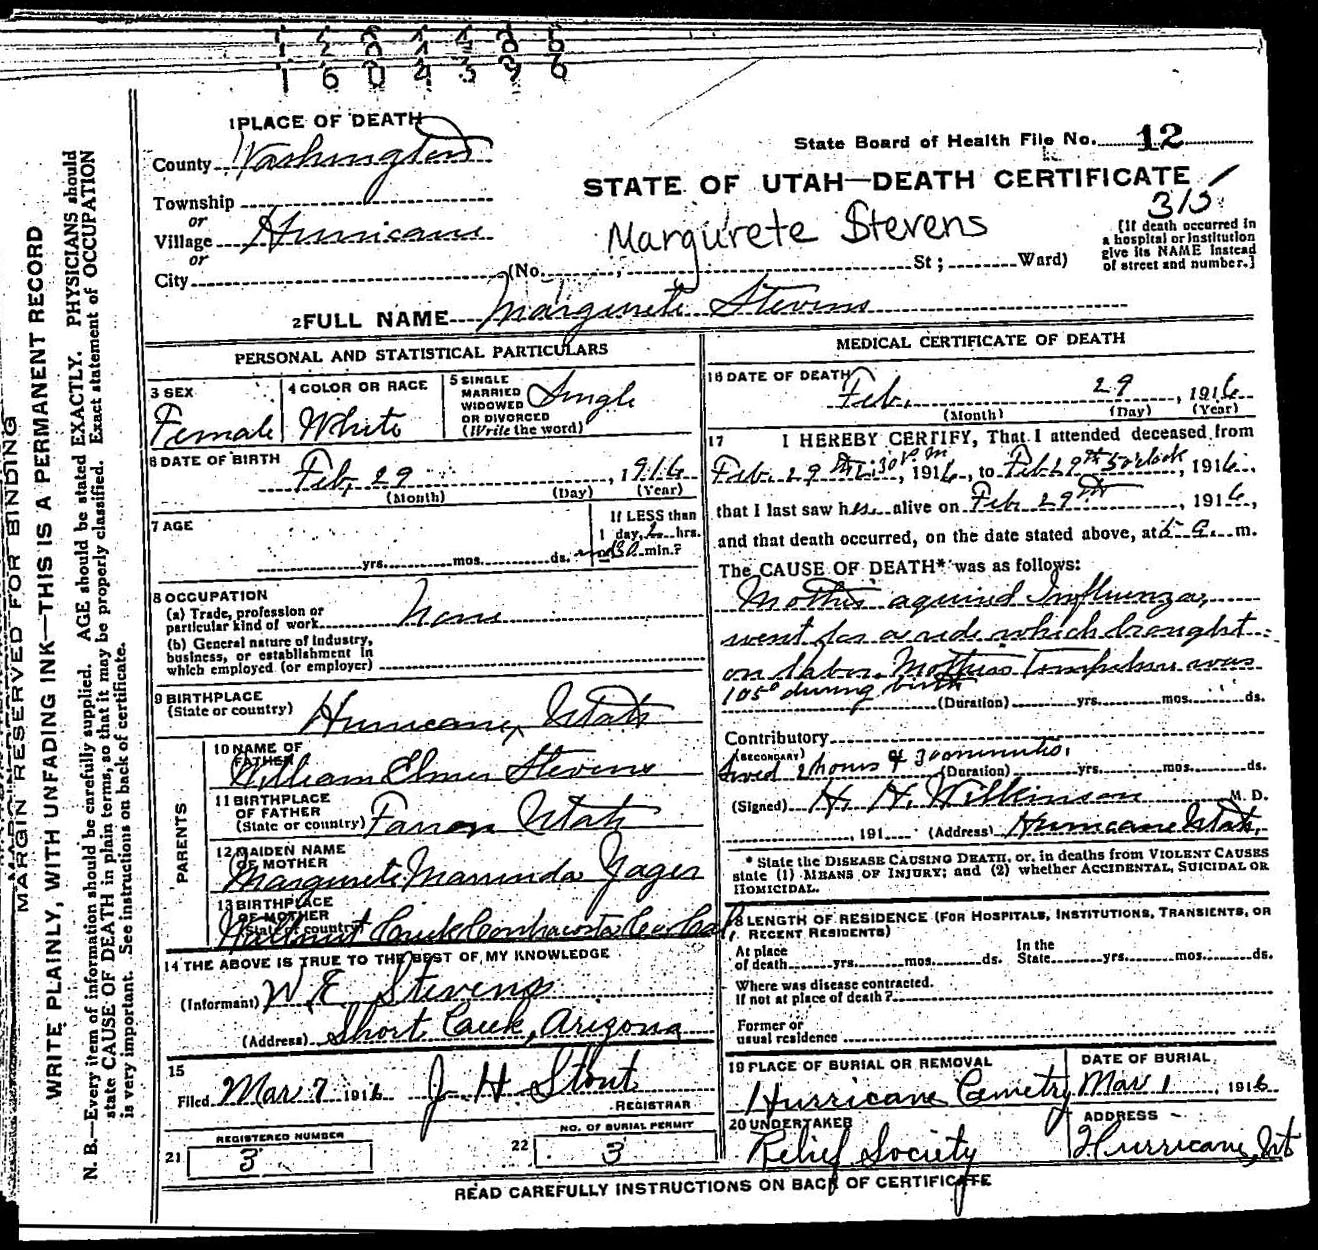 1 6 0 4 3 9 6
1 PLACE OF DEATH
County Washington
Township
or
Village Hurricane
or
City
State Board of Health File No. 12
STATE OF UTAH—DEATH CERTIFICATE
315
Margurete Stevens
(No. , St; Ward)
[If death occurred in
a hospital or institution
give its NAME instead
of street and number.]
2 FULL NAME Margurete Stevens
PERSONAL AND STATISTICAL PARTICULARS
3 SEX
Female
4 COLOR OR RACE
White
5 SINGLE
MARRIED
WIDOWED
OR DIVORCED
(Write the word)
Single
6 DATE OF BIRTH
Feb, 29, 1916
(Month) (Day) (Year)
7 AGE
yrs. mos. ds.
If LESS than
1 day, 2 hrs.
and 30 min.?
8 OCCUPATION
(a) Trade, profession or
particular kind of work None
(b) General nature of industry,
business, or establishment in
which employed (or employer)
9 BIRTHPLACE
(State or country) Hurricane, Utah
PARENTS
10 NAME OF
FATHER
William Elmer Stevens
11 BIRTHPLACE
OF FATHER
(State or country) Farron Utah
12 MAIDEN NAME
OF MOTHER
Margurete Marrinda Yager
13 BIRTHPLACE
OF MOTHER
(State or country)
14 THE ABOVE IS TRUE TO THE BEST OF MY KNOWLEDGE
(Informant) W, E, Stevens
(Address) Short Creek, Arizona
15
Filed Mar 7 1916 J. H. Stout
REGISTRAR
REGISTERED NUMBER
21 3
NO. OF BURIAL PERMIT
22 3
MEDICAL CERTIFICATE OF DEATH
16 DATE OF DEATH
Feb. 29, 1916
(Month) (Day) (Year)
17 I HEREBY CERTIFY, That I attended deceased from
Feb. 29th, 1916, to Feb 29th 5 o'clock, 1916,
that I last saw her alive on Feb 29th, 1916,
and that death occurred, on the date stated above, at 5 a. m.
The CAUSE OF DEATH* was as follows:
Mother aquired Influenza,
went for a ride which brought
on labor. Mothers temperture was
105° during birth
(Duration) yrs. mos. ds.
Contributory
(SECONDARY)
lived 2 hours & 30 minutes.
(Duration) yrs. mos. ds.
(Signed) H. H. Wilkinson M. D.
, 191 (Address) Hurricane Utah,
* State the DISEASE CAUSING DEATH, or, in deaths from VIOLENT CAUSES
state (1) MEANS OF INJURY; and (2) whether ACCIDENTAL, SUICIDAL OR
HOMICIDAL.
18 LENGTH OF RESIDENCE (FOR HOSPITALS, INSTITUTIONS, TRANSIENTS, OR
RECENT RESIDENTS)
At place
of death yrs. mos. ds.
In the
State yrs. mos. ds.
Where was disease contracted,
if not at place of death?
Former or
usual residence
19 PLACE OF BURIAL OR REMOVAL
Hurricane Cemetry
DATE OF BURIAL
Mar 1, 1916
20 UNDERTAKER
Relief Society
ADDRESS
Hurricane, Ut
READ CAREFULLY INSTRUCTIONS ON BACK OF CERTIFICATE
MARGIN RESERVED FOR BINDING
WRITE PLAINLY, WITH UNFADING INK—THIS IS A PERMANENT RECORD
N. B.—Every item of information should be carefully supplied. AGE should be stated EXACTLY. PHYSICIANS should
state CAUSE OF DEATH in plain terms, so that it may be properly classified. Exact statement of OCCUPATION
is very important. See instructions on back of certificate.